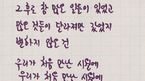 그 후로 참 많은 일들이 있었고
많은 것들이 달라져만 갔었지
변하지 않은 건
우리가 처음 만난 시절에
우리가 처음 만난 시절에